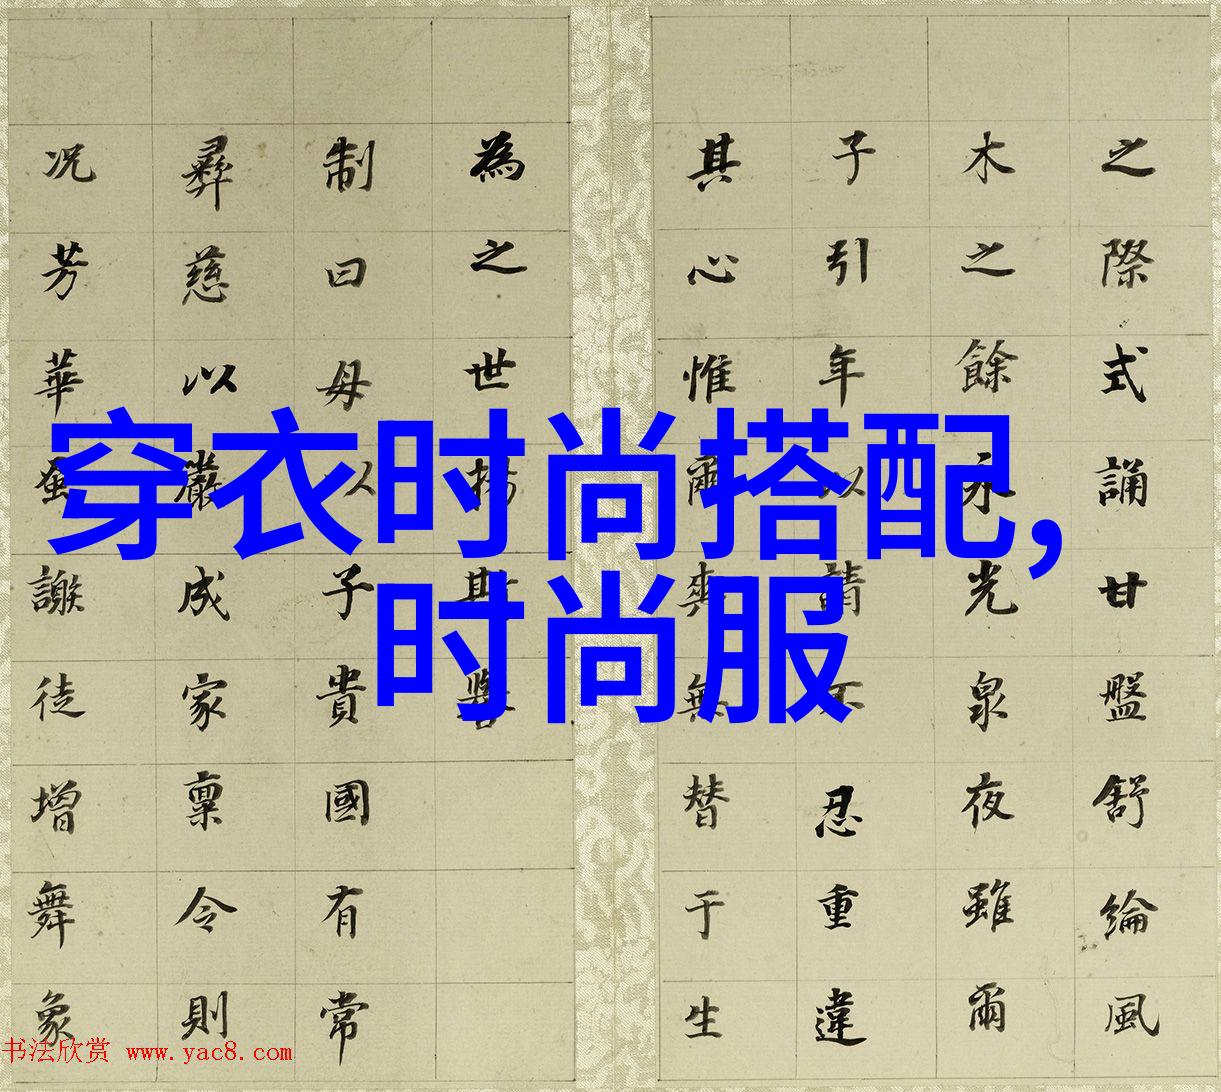 穿衣时尚搭配,
时尚服
之際式誦甘盤舒綸風
木之餘永光泉夜雖爾
子引年以請不忍重違
其心惟爾奭無替于生
為之世斯
制曰母以子貴國有常
彞慈以嚴成家稟令則
况芳華蚤謝徒增舞象
书法欣赏 www.yac8.com